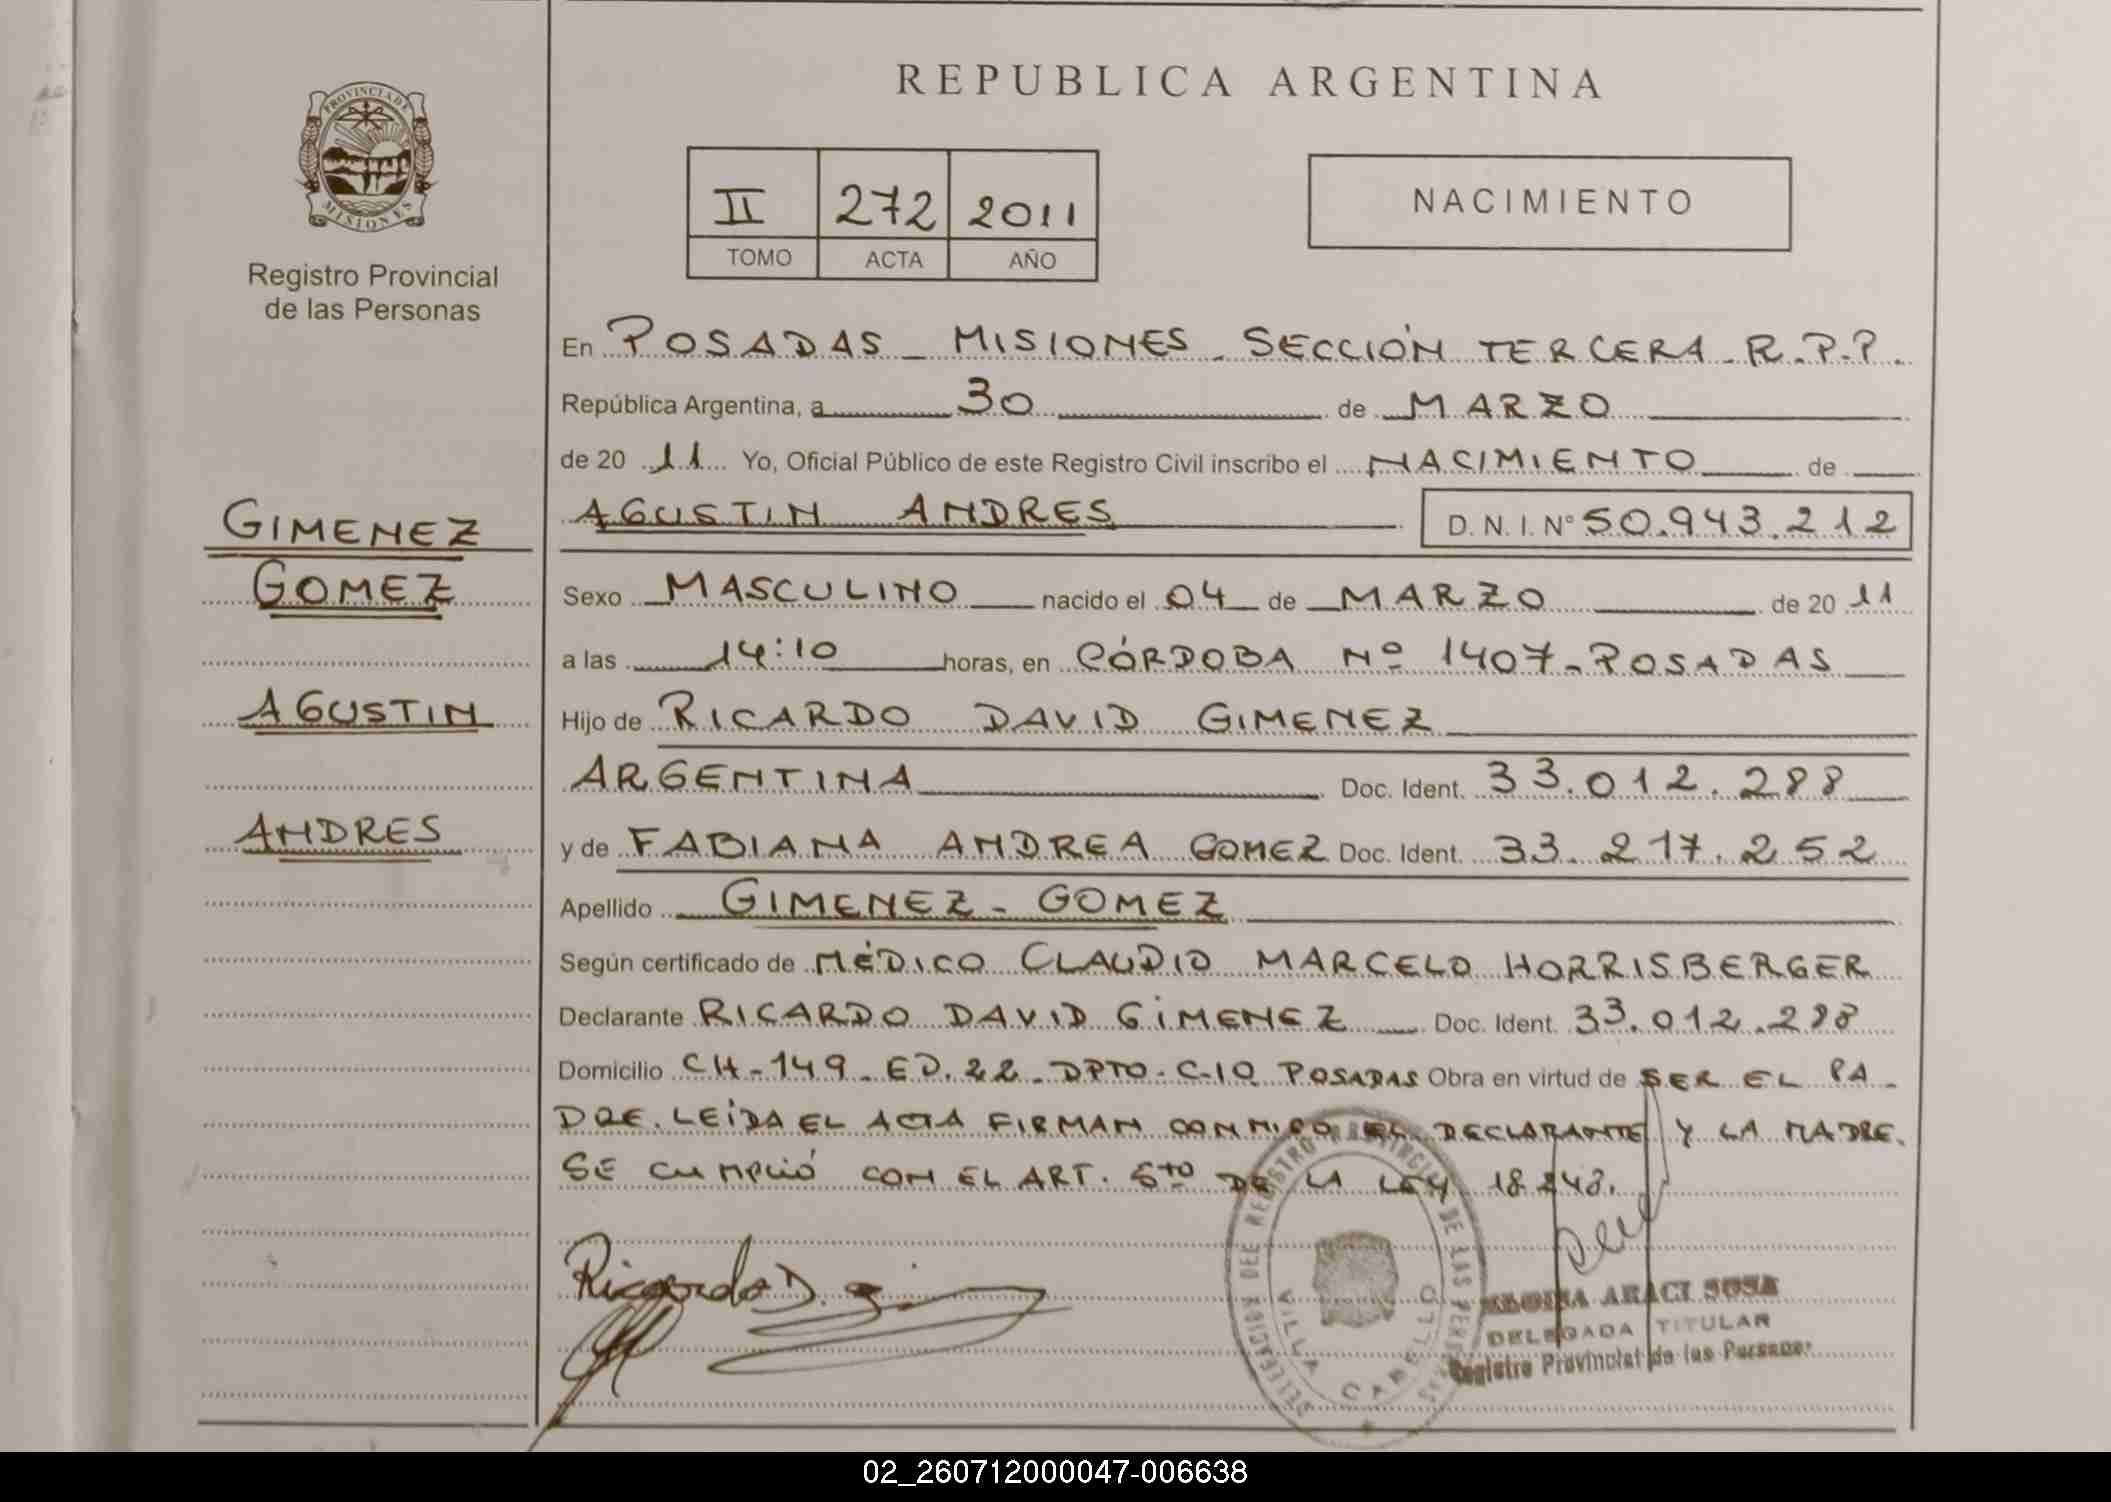 REPUBLICA ARGENTINA
PROVINCIA DE
MISIONES
Registro Provincial
de las Personas
II 272 2011
TOMO ACTA AÑO
NACIMIENTO
En POSADAS - MISIONES - SECCIÓN TERCERA - R.P.P.
República Argentina, a 30 de MARZO
de 20 11 Yo, Oficial Público de este Registro Civil inscribo el NACIMIENTO de
AGUSTIN ANDRES D. N. I. N° 50.943.212
GIMENEZ
GOMEZ
AGUSTIN
ANDRES
Sexo MASCULINO nacido el 04 de MARZO de 20 11
a las 14:10 horas, en CÓRDOBA Nº 1407 - POSADAS
Hijo de RICARDO DAVID GIMENEZ
ARGENTINA Doc. Ident. 33.012.288
y de FABIANA ANDREA GOMEZ Doc. Ident. 33.217.252
Apellido GIMENEZ - GOMEZ
Según certificado de MÉDICO CLAUDIO MARCELO HORRISBERGER
Declarante RICARDO DAVID GIMENEZ Doc. Ident. 33.012.288
Domicilio CH-149 - ED. 22 - DPTO. C-10 POSADAS Obra en virtud de SER EL PA-
DRE. LEÍDA EL ACTA FIRMAN CONMIGO EL DECLARANTE Y LA MADRE.
SE CUMPLIÓ CON EL ART. 6to DE LA LEY 18248.
Ricardo D.
DELEGACION DEL REGISTRO PROVINCIAL DE LAS PERSONAS
VILLA CABELLO
ARACI SOSA
DELEGADA TITULAR
Registro Provincial de las Personas
02_260712000047-006638